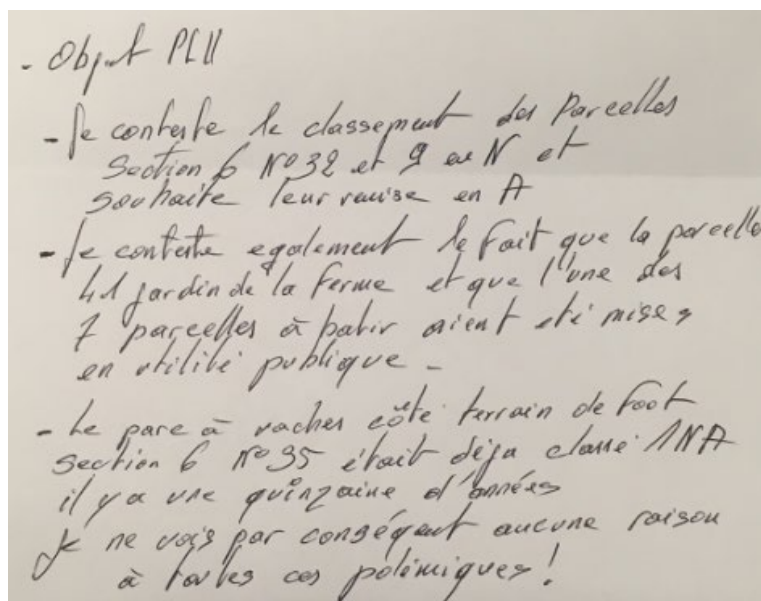 - Objet PLU
- Je conteste le classement des Parcelles
Section 6 N° 32 et 9 en N et
souhaite leur remise en A
- Je conteste egalement le fait que la parcelle
41 jardin de la ferme et que l'une des
7 parcelles à batir aient été mises
en utilité publique -
- Le parc à vaches côté terrain de Foot
Section 6 N° 35 était déja classé 1NA
il y a une quinzaine d'années
Je ne vois par conséqent aucune raison
à toutes ces polémiques !